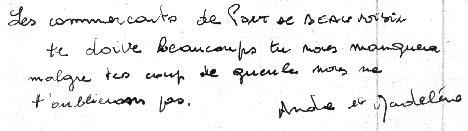 Les commercants de Pont de BEAUVOISIN
te doive beaucoups tu nous manquera
malgre tes coup de gueule nous ne
t'oublierons pas.
Andre et Mardeléne